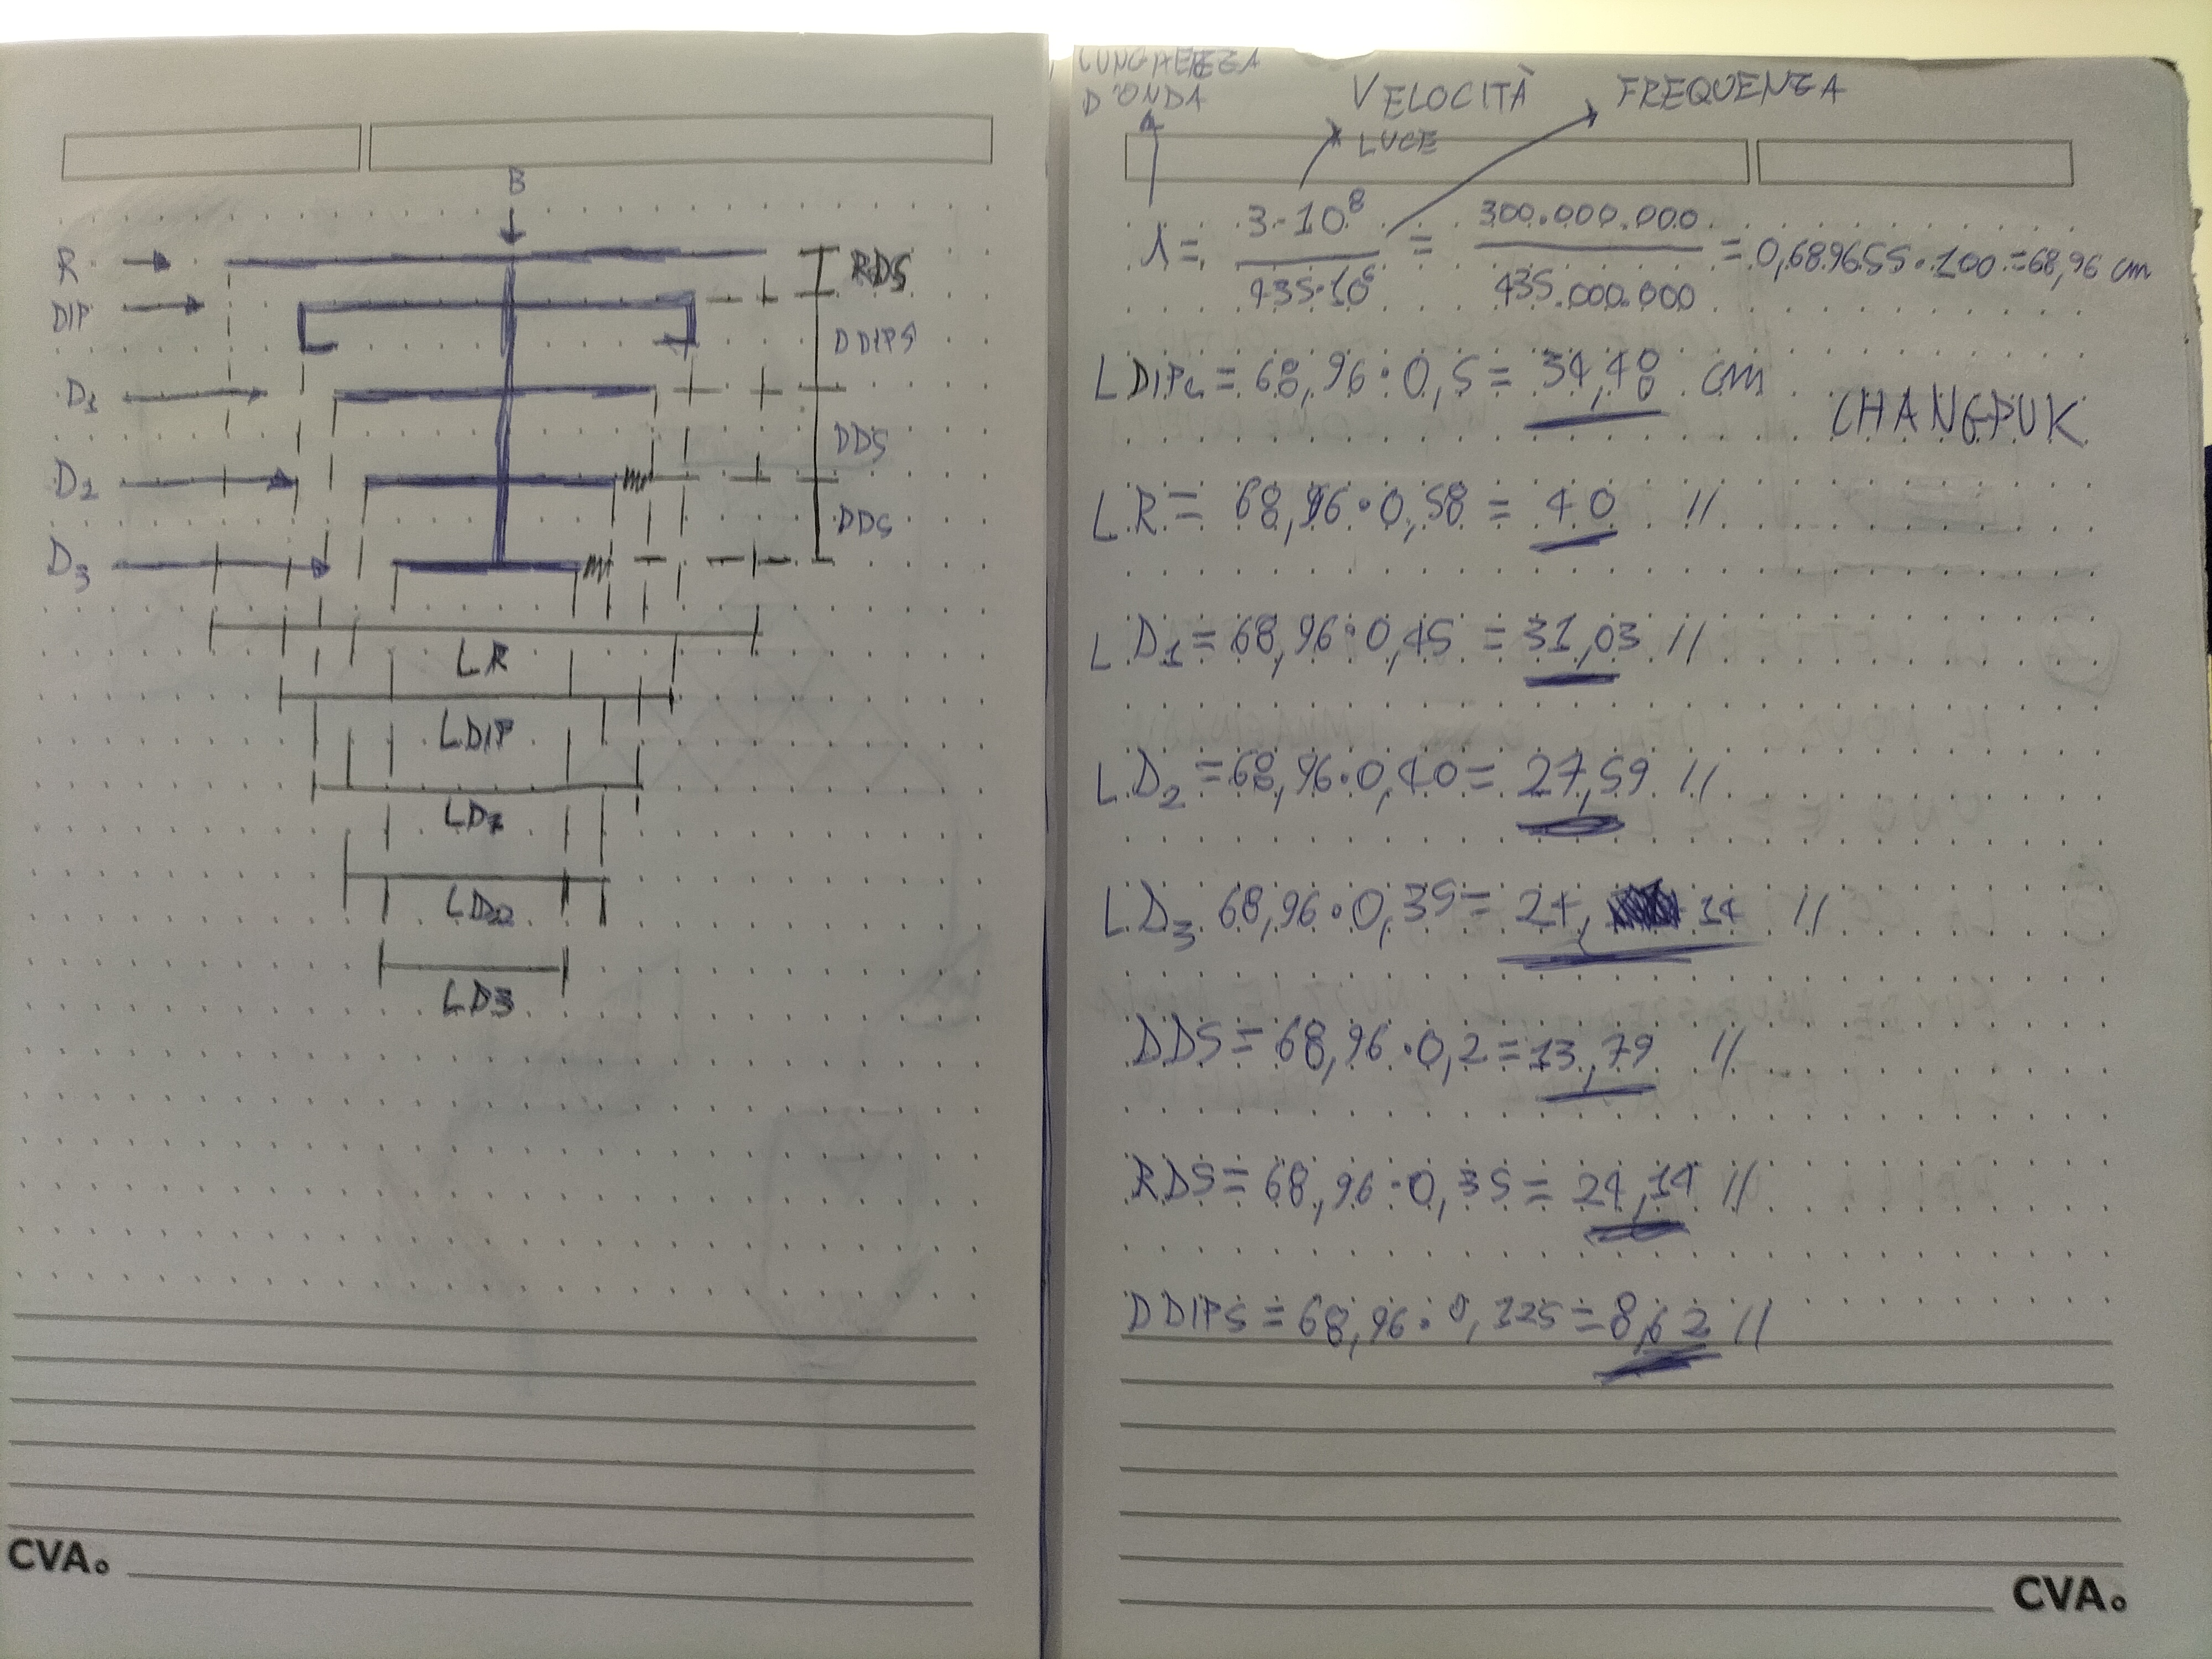 B
R
RDS
DIP
DDIPS
D1
DDS
D2
DDS
D3
LR
LDIP
LD1
LD2
LD3
CVA.
LUNGHEZZA
D'ONDA
VELOCITÀ
LUCE
FREQUENZA
λ = 3·10⁸ / 435·10⁶ = 300.000.000 / 435.000.000 = 0,689655·100 = 68,96 cm
LDIPc = 68,96·0,5 = 34,48 cm
CHANGPUK
LR = 68,96·0,58 = 40 //
LD1 = 68,96·0,45 = 31,03 //
LD2 = 68,96·0,40 = 27,59 //
LD3 68,96·0,35 = 24, 14 //
DDS = 68,96·0,2 = 13,79 //
RDS = 68,96·0,35 = 24,14 //
DDIPS = 68,96·0,125 = 8,62 //
CVA.